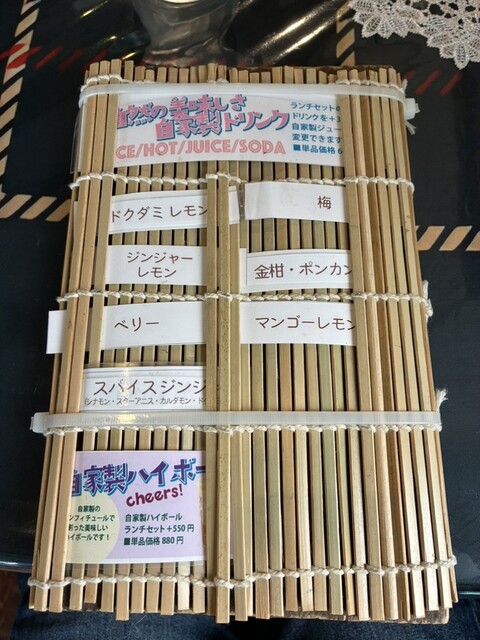 自然の美味しさ
自家製ドリンク
CE/HOT/JUICE/SODA
ランチセットの
ドリンクを+3
自家製ジュー
変更できます
■単品価格 6
ドクダミレモン
梅
ジンジャー
レモン
金柑・ポンカン
ベリー
マンゴーレモン
スパイスジンジ
シナモン・スターアニス・カルダモン・
自家製ハイボー
cheers!
自家製の
ンフィチュールで
作った美味しい
ハイボールです!
自家製ハイボール
ランチセット+550円
■単品価格 880円